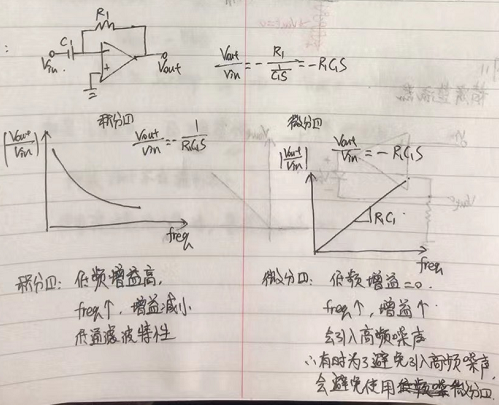 R1
C1
Vin
Vout
Vout/Vin = - R1/(1/C1S) = -R1C1S
积分口
Vout/Vin = - 1/(R1C1S)
|Vout/Vin|
freq
微分口
Vout/Vin = - R1C1S
|Vout/Vin|
R1C1
freq
积分口: 低频增益高,
freq↑, 增益减小
低通滤波特性
微分口: 低频增益=0.
freq↑, 增益↑
会引入高频噪声
∴有时为了避免引入高频噪声,
会避免使用微分口.